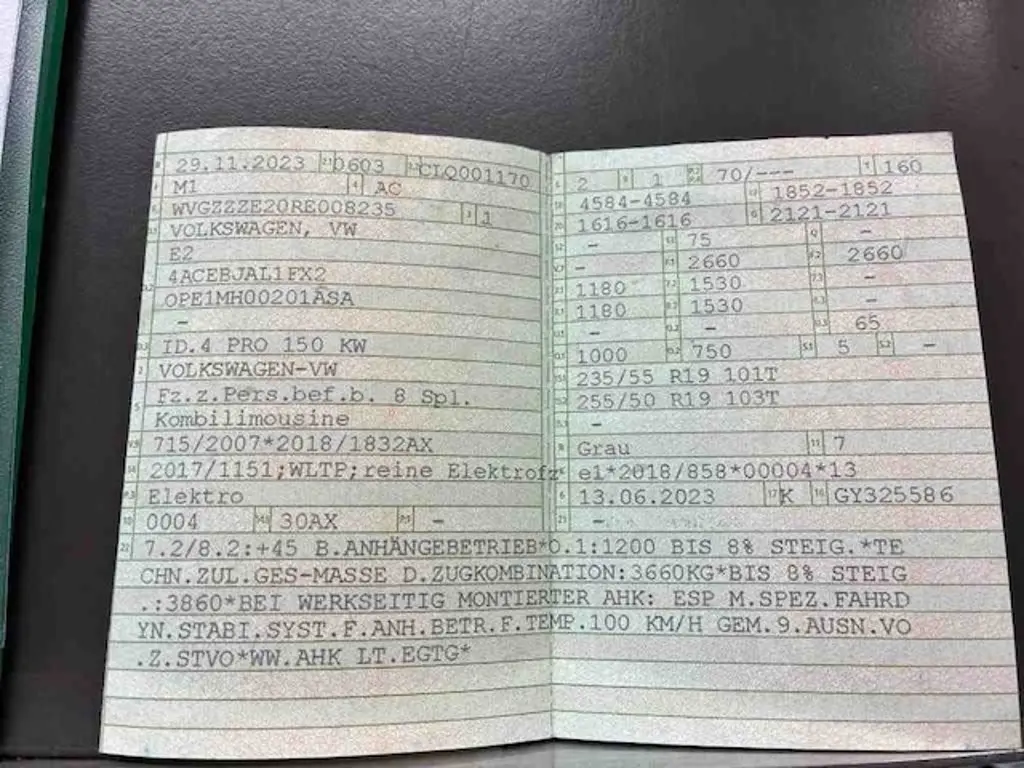 29.11.2023 0603 CLQ001170
M1 AC
WVGZZZE20RE008235 1
VOLKSWAGEN, VW
E2
4ACEBJAL1FX2
OPE1MH00201ASA
-
ID.4 PRO 150 KW
VOLKSWAGEN-VW
Fz.z.Pers.bef.b. 8 Spl.
Kombilimousine
715/2007*2018/1832AX
2017/1151;WLTP;reine Elektrofz
Elektro
0004 30AX -
2 1 70/--- 160
4584-4584 1852-1852
1616-1616 2121-2121
- 75 -
- 2660 2660
1180 1530 -
1180 1530 -
- - 65
1000 750 5 -
235/55 R19 101T
255/50 R19 103T
-
Grau 7
e1*2018/858*00004*13
13.06.2023 K GY325586
-
7.2/8.2:+45 B.ANHÄNGEBETRIEB*O.1:1200 BIS 8% STEIG.*TE
CHN.ZUL.GES-MASSE D.ZUGKOMBINATION:3660KG*BIS 8% STEIG
.:3860*BEI WERKSEITIG MONTIERTER AHK: ESP M.SPEZ.FAHRD
YN.STABI.SYST.F.ANH.BETR.F.TEMP.100 KM/H GEM.9.AUSN.VO
.Z.STVO*WW.AHK LT.EGTG*